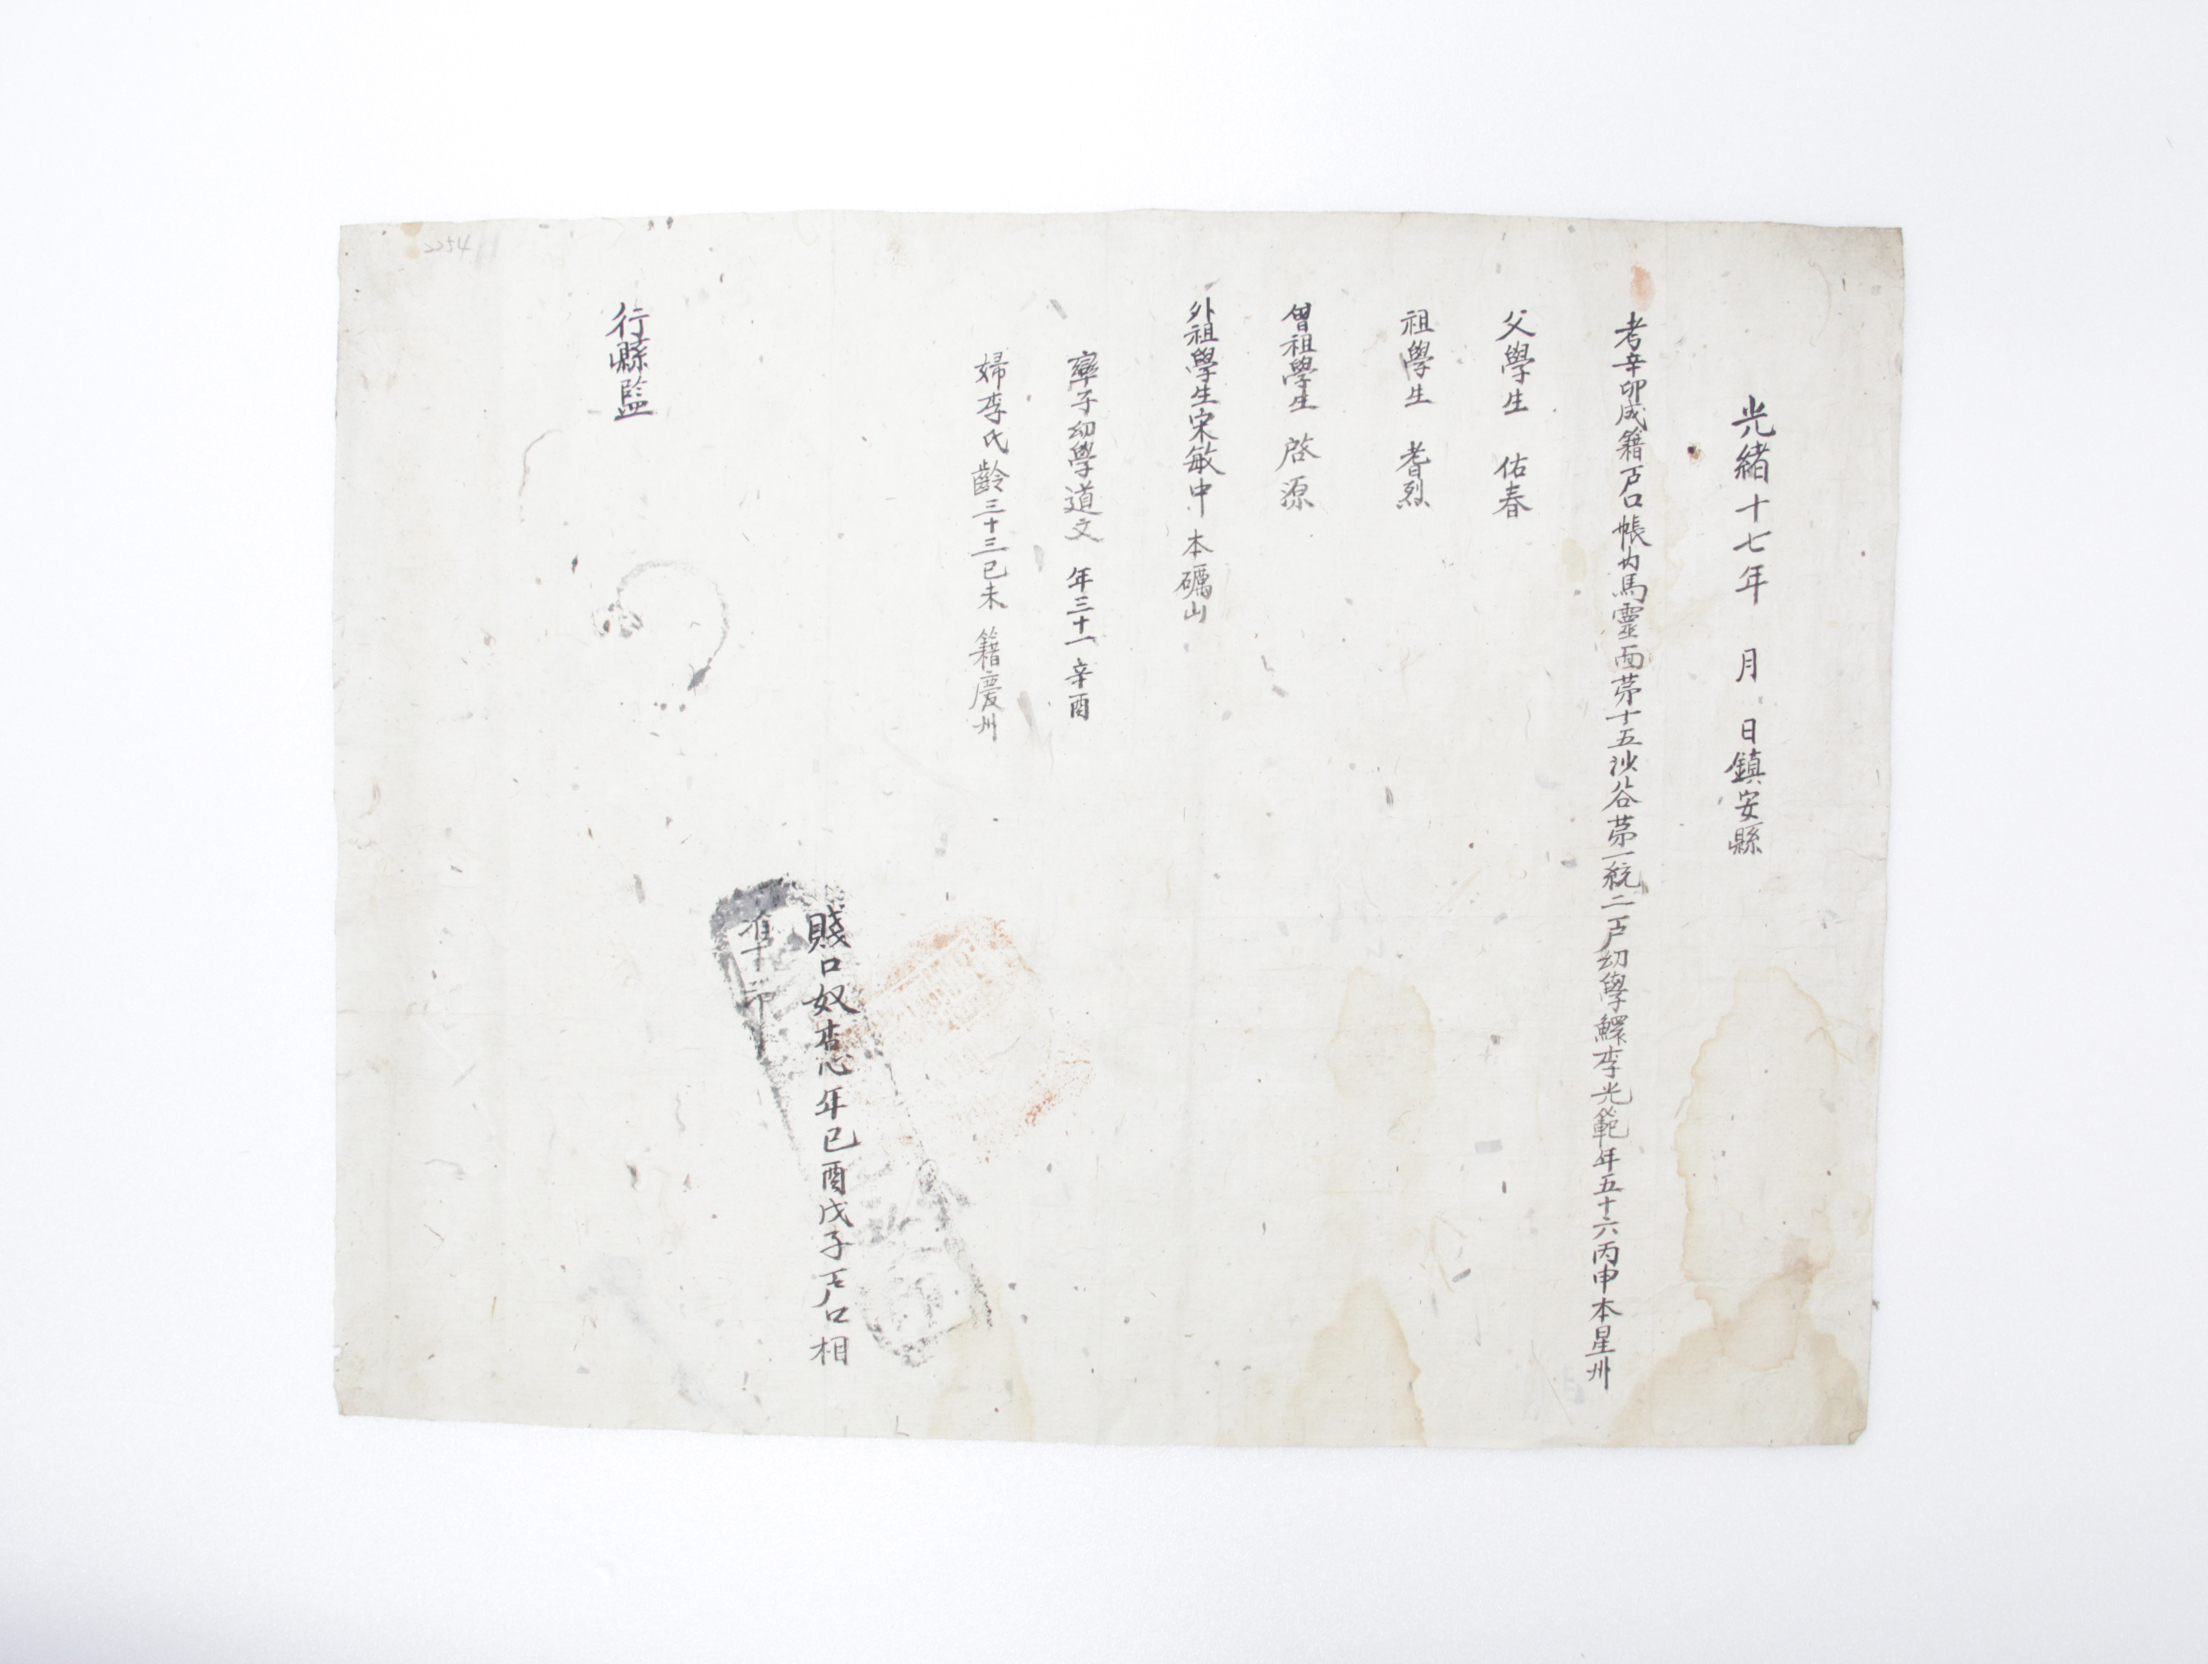 光緖十七年 月 日鎭安縣
考辛卯成籍戶口帳內馬靈面苐十五沙谷苐一統二戶幼學鰥李光範年五十六丙申本星州
父學生 佑春
祖學生 耆烈
曾祖學生 啓源
外祖學生宋敏中 本礪山
率子幼學道文 年三十一辛酉
婦李氏齡三十三己未 籍慶州
賤口奴杏心年己酉戊子戶口相
准印
行縣監
2254